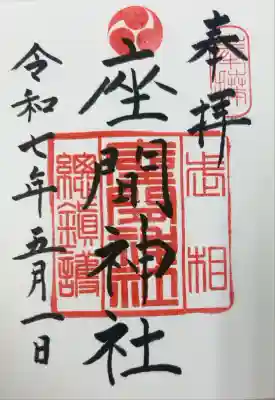 奉拝
座間神社
令和七年五月一日
武相
座間神社
總鎮護